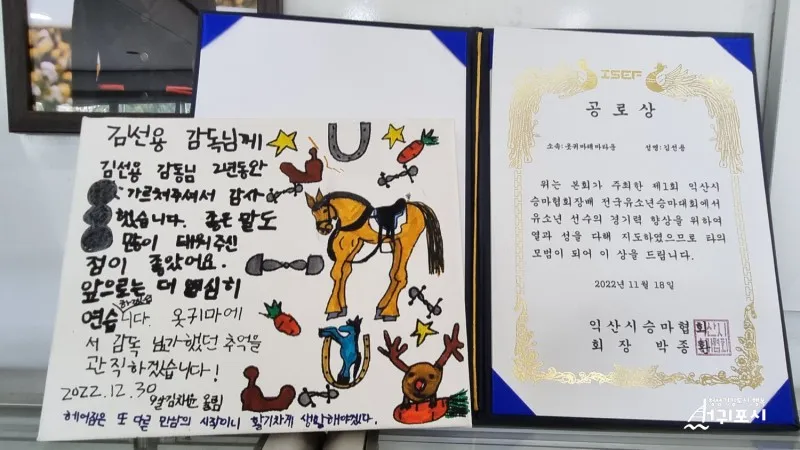 김선용 감독님께
김선용 감독님 2년동안
가르쳐주셔서 감사
했습니다. 좋은 말도
많이 태워주신
점이 좋았어요.
앞으로는 더 열심히
연습 니다. 옷귀마에
서 감독님과 했던 추억을
간직하겠습니다!
2022.12.30
9살 김채윤 올림
헤어짐은 또 다른 만남의 시작이니 활기차게 생활해야겠다.
ISEF
공로상
소속:옷귀마테마타운 성명:김선용
위는 본회가 주최한 제1회 익산시
승마협회장배 전국유소년승마대회에서
유소년 선수의 경기력 향상을 위하여
열과 성을 다해 지도하였으므로 타의
모범이 되어 이 상을 드립니다.
2022년 11월 18일
익산시승마협회
회장 박종
서귀포시